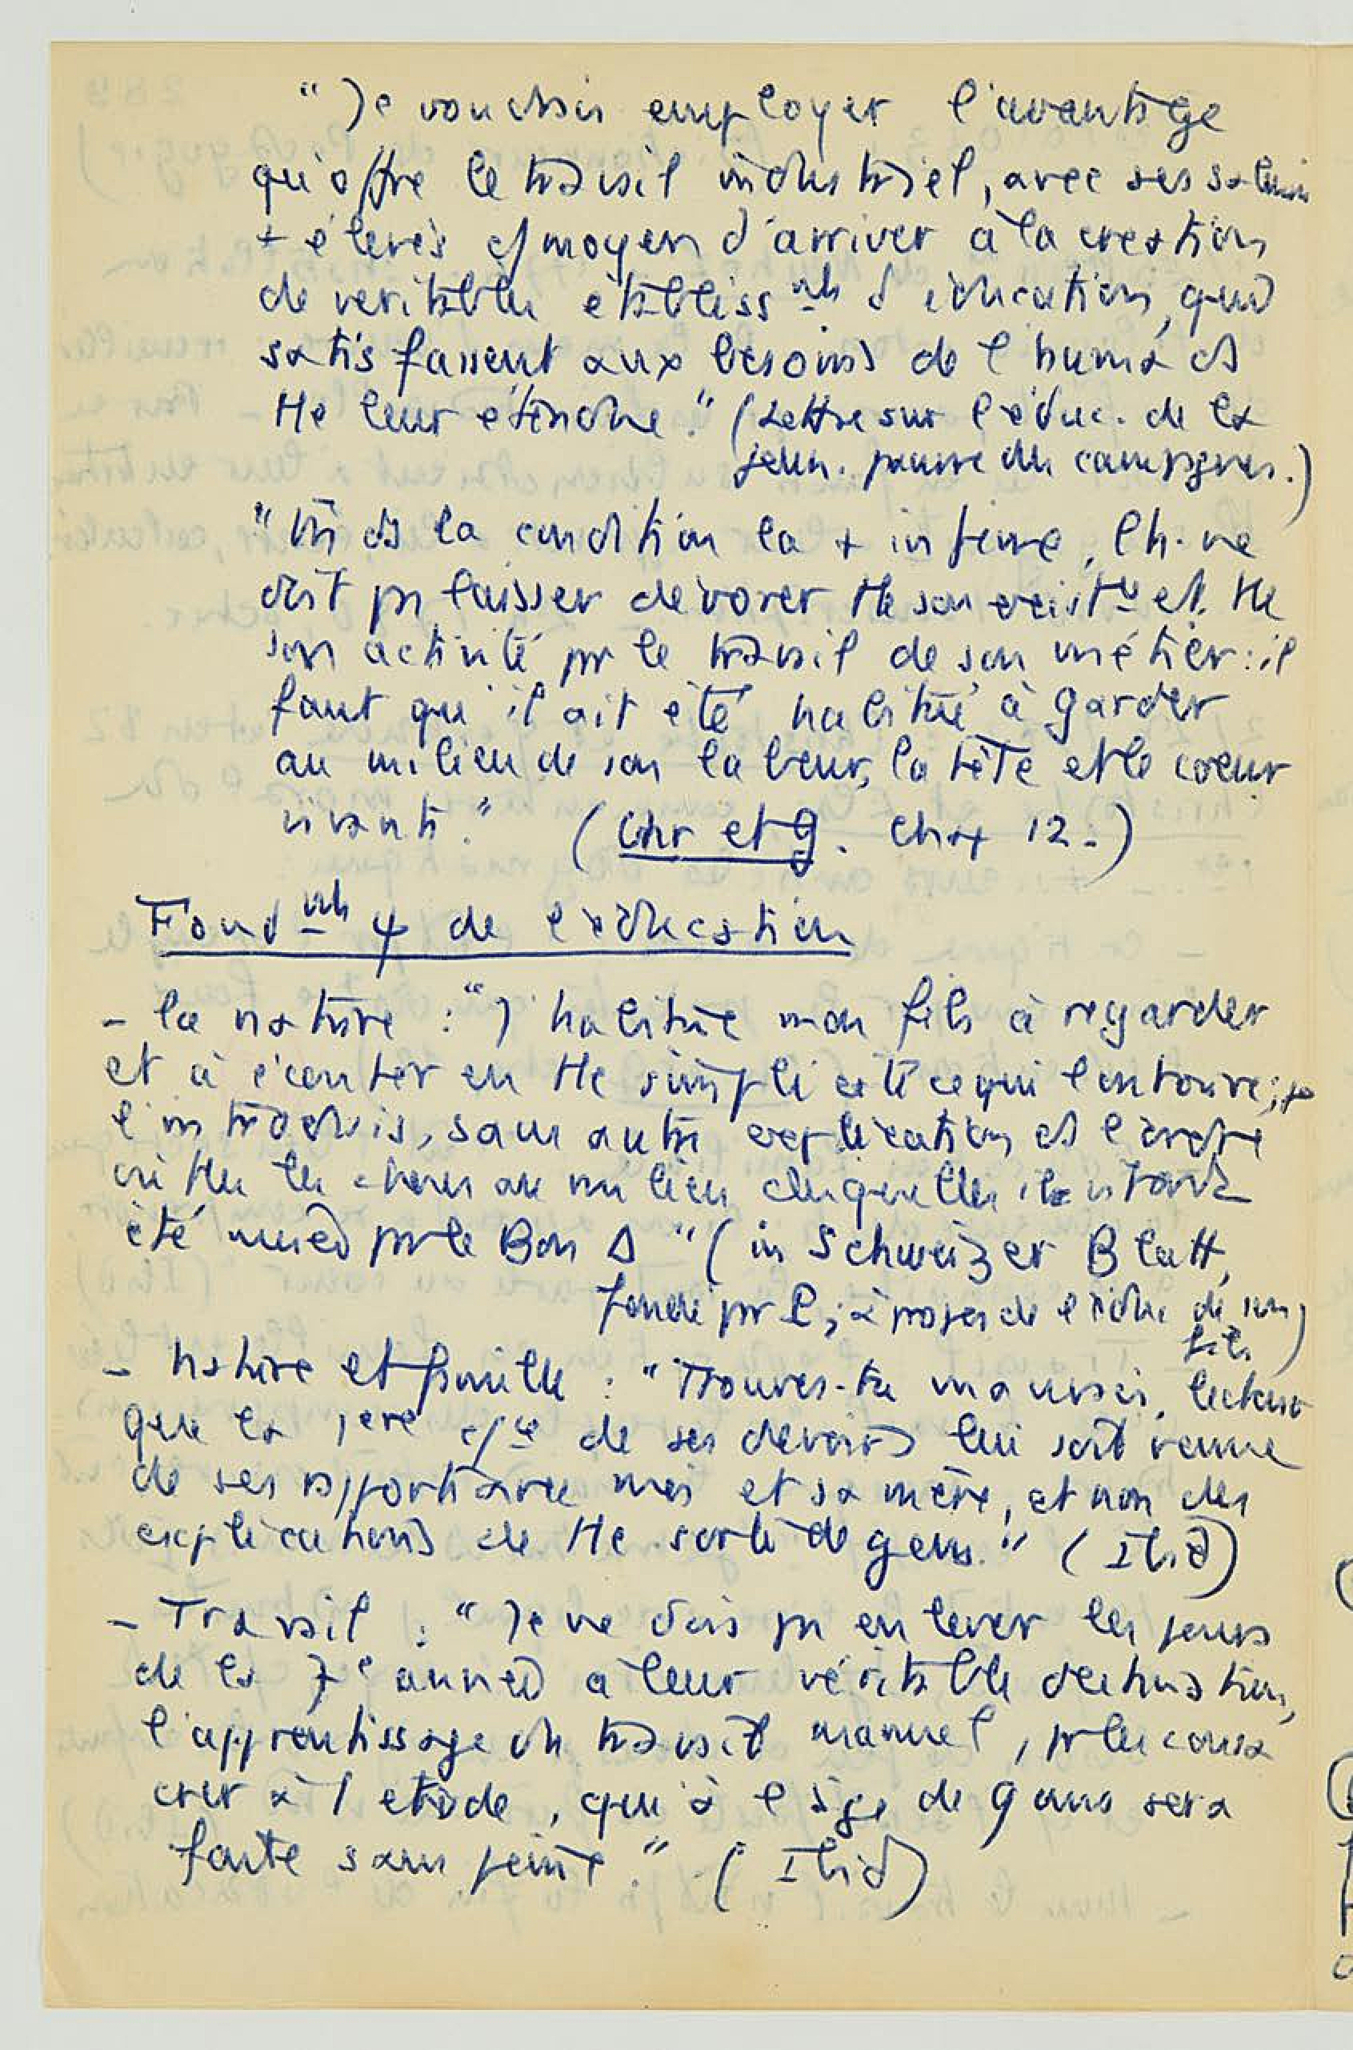 "Je voudrais employer l'avantage
qu'offre le travail industriel, avec ses salaires
+ élevés c/ moyen d'arriver à la création
de véritables établiss^nts d'éducation, qui
satisfassent aux besoins de l'huma ds
tte leur étendue." (Lettre sur l'éduc. de la
jeun. pauvre des campagnes.)
"Un ds la condition la + infime, l'h. ne
doit pas laisser dévorer tte son et tte
son activité pr le travail de son métier : il
faut qu'il ait été habitué à garder
au milieu de son labeur, la tête et le coeur
vivants." (Chr et G. chap 12.)
Fond^nts ψ de l'éducation
- la nature : "J'habitue mon fils à regarder
et à écouter en tte simplicité ce qui l'entoure ; je
l'introduis, sans autre explication ds l'ordre
où ttes les choses au milieu desquelles il
été mises par le Bon Δ" (in Schweizer Blatt,
fondé par P, à propos de l'éduc de son
fils)
- Nature et famille : "Trouves-tu mauvais, lecteur
que la 1ère de ses devoirs lui soit venue
de ses rapports avec moi et sa mère, et non des
explications de tte sorte de gens." (Ibid)
- Travail : "Je ne dois pas enlever les jours
de la 7e année à leur véritable destination,
l'apprentissage du travail manuel, pr les consa
crer à l'étude, qui à l'âge de 9 ans sera
faite sans peine." (Ibid)